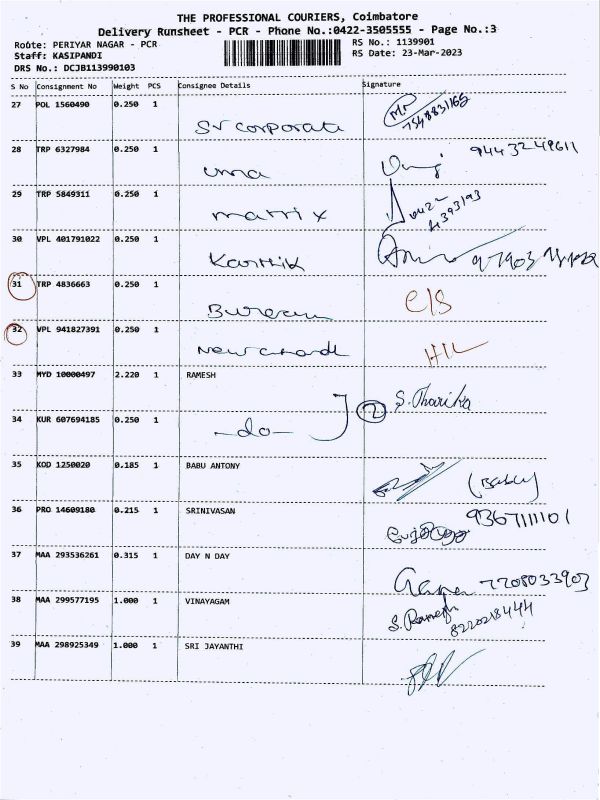 THE PROFESSIONAL COURIERS, Coimbatore
Delivery Runsheet - PCR - Phone No.:0422-3505555 - Page No.:3
Route: PERIYAR NAGAR - PCR RS No.: 1139901
Staff: KASIPANDI RS Date: 23-Mar-2023
DRS No.: DCJB113990103
S No Consignment No Weight PCS Consignee Details Signature
27 POL 1560490 0.250 1 Sv corporate
28 TRP 6327984 0.250 1 uma 9443249611
29 TRP 5849311 0.250 1 matrix 0422 4393193
30 VPL 401791022 0.250 1 Karthik
31 TRP 4836663 0.250 1 c/s
32 VPL 941827391 0.250 1
33 MYD 10000497 2.220 1 RAMESH 2 S. Tharika
34 KUR 607694185 0.250 1 -do-
35 KOD 1250020 0.185 1 BABU ANTONY (Babu)
36 PRO 14609180 0.215 1 SRINIVASAN 9367111101
37 MAA 293536261 0.315 1 DAY N DAY 7708033903
38 MAA 299577195 1.000 1 VINAYAGAM S. Ramesh 8220218444
39 MAA 298925349 1.000 1 SRI JAYANTHI